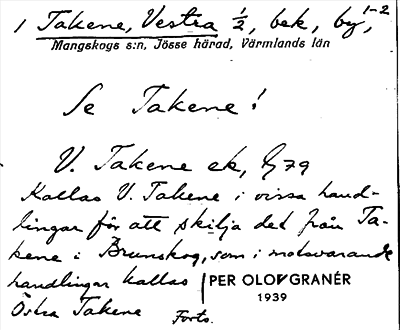 1 Takene, Vestra 1/2, bek, by, 1-2
Mangskogs s:n, Jösse härad, Värmlands län
Se Takene!
V. Takene ek, 79
Kallas V. Takene i vissa hand-
lingar för att skilja det från Ta-
kene i Brunskog, som i motsvarande
handlingar kallas
Östra Takene Forts.
PER OLOV GRANÉR
1939